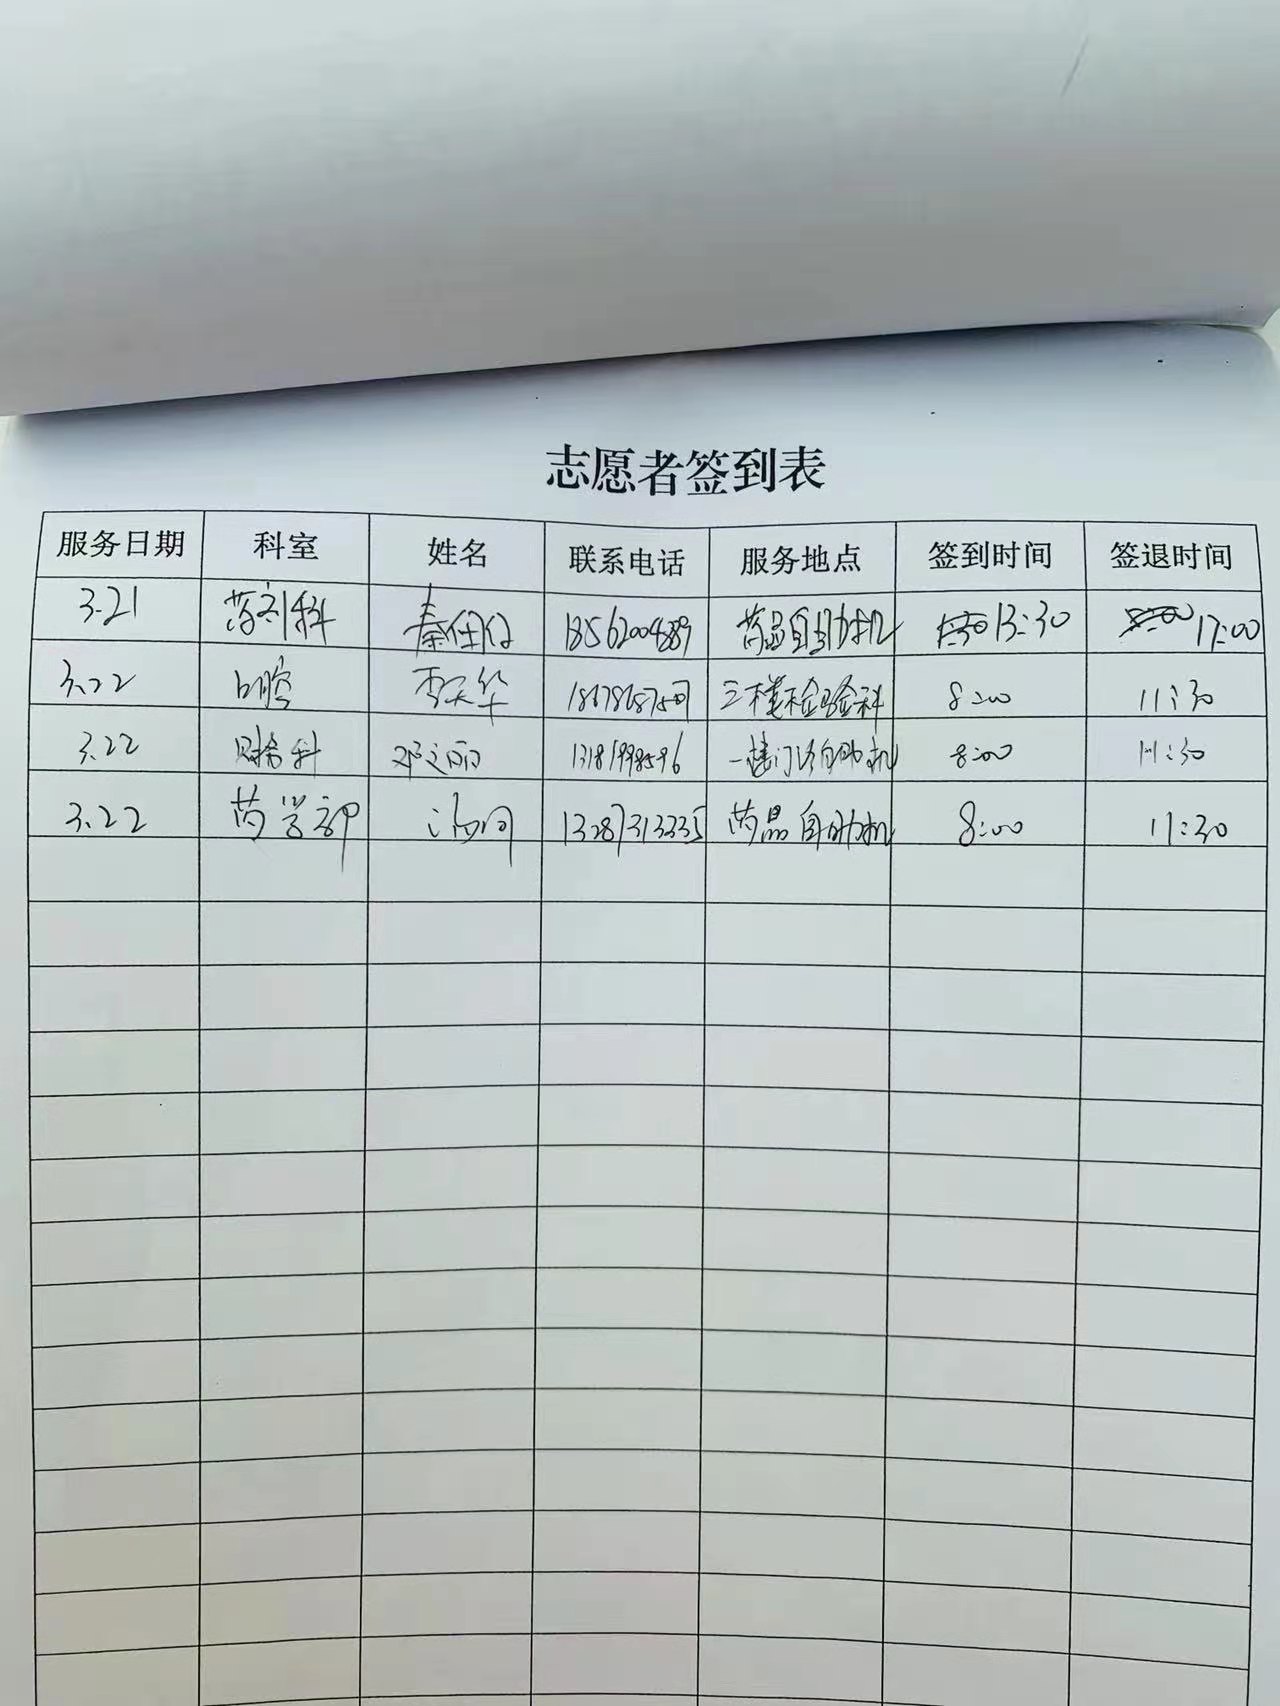 志愿者签到表
服务日期 科室 姓名 联系电话 服务地点 签到时间 签退时间
3.21 药剂科 秦 药品自助机 13:30 17:00
3.22 口腔 华 三楼检验科 8:00 11:30
3.22 财务科 邓 一楼门诊自助机 8:00 11:30
3.22 药学部 13287313335 药品自助机 8:00 11:30